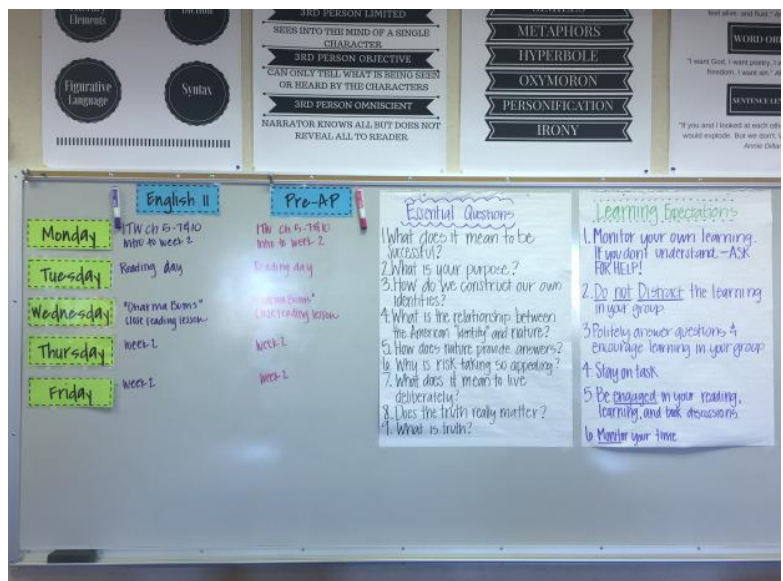 Literary
Elements
Diction
Figurative
Language
Syntax
3RD PERSON LIMITED
SEES INTO THE MIND OF A SINGLE
CHARACTER
3RD PERSON OBJECTIVE
CAN ONLY TELL WHAT IS BEING SEEN
OR HEARD BY THE CHARACTERS
3RD PERSON OMNISCIENT
NARRATOR KNOWS ALL BUT DOES NOT
REVEAL ALL TO READER
METAPHORS
HYPERBOLE
OXYMORON
PERSONIFICATION
IRONY
feel alive, and rust."
WORD OR
"I want God, I want poetry, I
freedom, I want sin."
SENTENCE
"If you and I looked at each
would explode. But we don't.
Annie Dillar
English II
Pre-AP
Monday
ITW ch 5-7&10
Intro to week 2
ITW ch 5-7&10
Intro to week 2
Tuesday
Reading day
Reading day
Wednesday
"Dharma Bums"
Close reading lesson
"Dharma Bums"
Close reading lesson
Thursday
Week 2
Week 2
Friday
Week 2
Week 2
Essential Questions
1. What does it mean to be
successful?
2. What is your purpose?
3. How do we construct our own
identities?
4. What is the relationship between
the American "identity" and nature?
5. How does nature provide answers?
6. Why is risk taking so appealing?
7. What does it mean to live
deliberately?
8. Does the truth really matter?
9. What is truth?
Learning Expectations
1. Monitor your own learning.
If you don't understand - ASK
FOR HELP!
2. Do not Distract the learning
in your group
3. Politely answer questions &
encourage learning in your group
4. Stay on task
5. Be engaged in your reading,
learning, and book discussions
6. Monitor your time